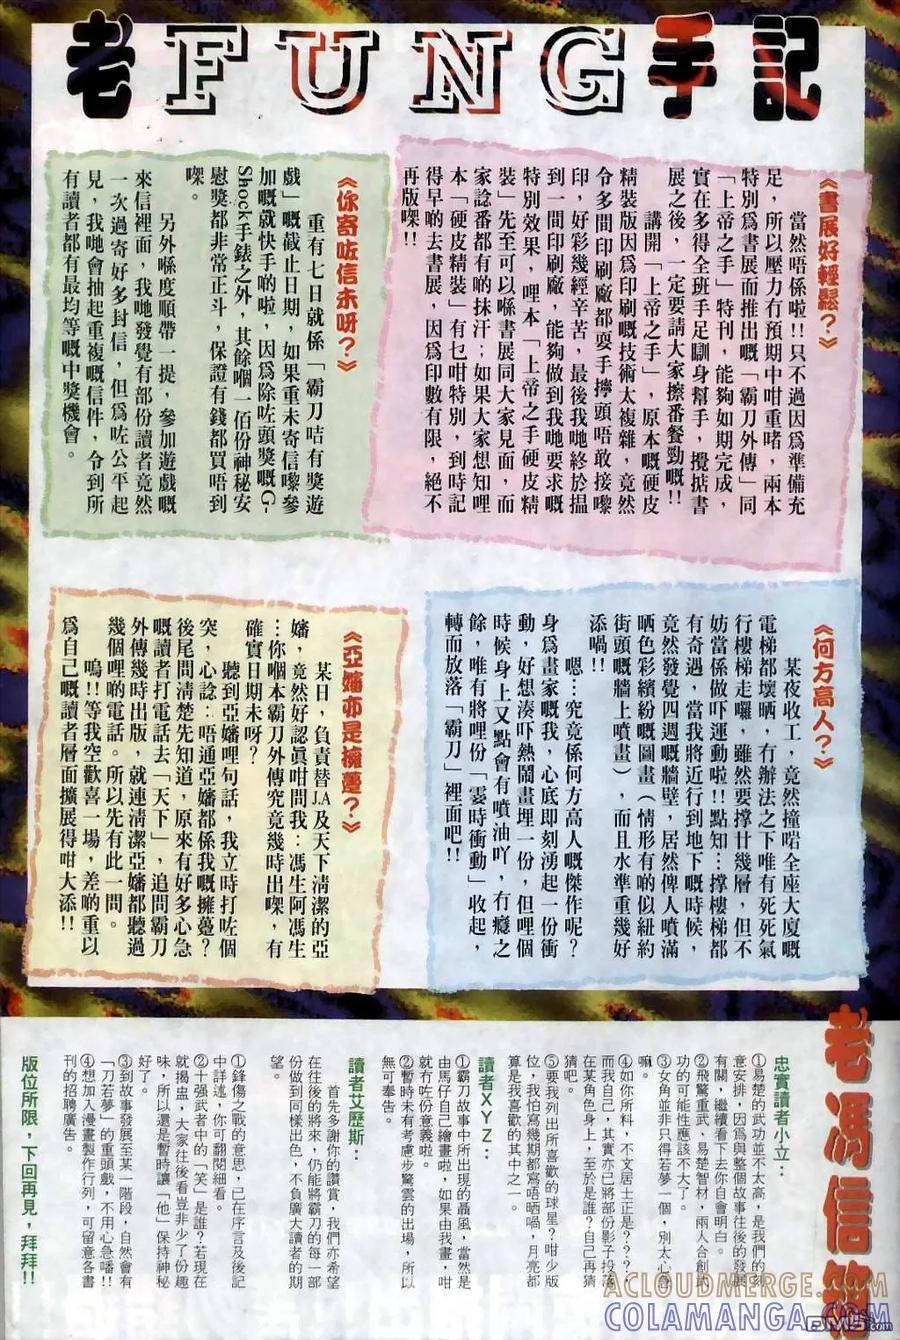 老FUNG手記
《書展好輕鬆？》
當然唔係啦!!只不過因爲準備充
足，所以壓力有預期中咁重啫，兩本
特別爲書展而推出嘅「霸刀外傳」同
「上帝之手」特刊，能夠如期完成，
實在多得全班手足瞓身幫手，攪掂書
展之後，一定要請大家擦番餐勁嘅!!
講開「上帝之手」，原本嘅硬皮
精裝版因爲印刷嘅技術太複雜，竟然
令多間印刷廠都耍手擰頭唔敢接嚟
印，好彩幾經辛苦，最後我哋終於揾
到一間印刷廠，能夠做到我哋要求嘅
特別效果，哩本「上帝之手硬皮精
裝」先至可以喺書展同大家見面，而
家諗番都有啲抹汗；如果大家想知哩
本「硬皮精裝」有乜咁特別，到時記
得早啲去書展，因爲印數有限，絕不
再版㗎!!
《你寄咗信未呀？》
重有七日就係「霸刀咭有獎遊
戲」嘅截止日期，如果重未寄信嚟參
加嘅就快手啲啦，因爲除咗頭獎嘅G-
Shock手錶之外，其餘嗰一佰份神秘安
慰獎都非常正斗，保證有錢都買唔到
㗎。
另外喺度順帶一提，參加遊戲嘅
來信裡面，我哋發覺有部份讀者竟然
一次過寄好多封信，但爲咗公平起
見，我哋會抽起重複嘅信件，令到所
有讀者都有最均等嘅中獎機會。
《何方高人？》
某夜收工，竟然撞啱全座大廈嘅
電梯都壞晒，冇辦法之下唯有死死氣
行樓梯走囉，雖然要撑廿幾層，但不
妨當係做吓運動啦!!點知…撑樓梯都
有奇遇，當我將近行到地下嘅時候，
竟然發覺四週嘅牆壁，居然俾人噴滿
晒色彩繽紛嘅圖畫（情形有啲似紐約
街頭嘅牆上噴畫），而且水準重幾好
添喎!!
嗯…究竟係何方高人嘅傑作呢？
身爲畫家嘅我，心底即刻湧起一份衝
動，好想湊吓熱鬧畫埋一份，但哩個
時候身上又點會有噴油吖，冇癮之
餘，唯有將哩份「霎時衝動」收起，
轉而放落「霸刀」裡面吧!!
《亞嬸亦是擁躉？》
某日，負責替J.A及天下淸潔的亞
嬸，竟然好認眞咁問我：馮生阿馮生
…你嗰本霸刀外傳究竟幾時出㗎，有
確實日期未呀？
聽到亞嬸哩句話，我立時打咗個
突，心諗：唔通亞嬸都係我嘅擁躉？
後尾問淸楚先知道，原來有好多心急
嘅讀者打電話去「天下」，追問霸刀
外傳幾時出版，就連淸潔亞嬸都聽過
幾個哩啲電話。所以先有此一問。
嗚!!等我空歡喜一場，差啲重以
爲自己嘅讀者層面擴展得咁大添!!
老馮信箱
忠實讀者小立：
①易楚的武功並不太高，是我們的刻
意安排，因爲與整個故事往後的發展
有關，繼續看下去你自會明白。
②飛驚重武、易楚智材，兩人合創武
功的可能性應該不大了。
③女角並非只得若夢一個，別太心急
嘛。
④如你所料，不文居士正是？？？，
而我自己，其實亦已將部份影子投進
在某角色身上，至於是誰？自己再猜
猜吧。
⑤要我列出所喜歡的球星？咁少版
位，我怕寫幾期都寫唔晒喎，月亮都
算是我喜歡的其中之一。
讀者XYZ：
①霸刀故事中所出現的聶風，當然是
由馬仔自己繪畫啦，如果由我畫，咁
就冇咗份意義啦。
②暫時未有考慮步驚雲的出場，所以
無可奉告。
讀者艾歷斯：
首先多謝你的讚賞，我們亦希望
在往後的將來，仍能將霸刀的每一部
份做到同樣出色，不負廣大讀者的期
望。
①鋒傷之戰的意思，已在序言及後記
中詳述，你可翻閱細看。
②十强武者中的「笑」是誰？若現在
就揭盅，大家往後看豈非少了份趣
味，所以還是暫時讓「他」保持神秘
好了。
③到故事發展至某一階段，自然會有
「刀若夢」的重頭戲，不用心噃!!
④想加入漫畫製作行列，可留意各書
刊的招聘廣告。
版位所限，下回再見，拜拜!!
ACLOUDMERGE.COM
COLAMANGA.COM